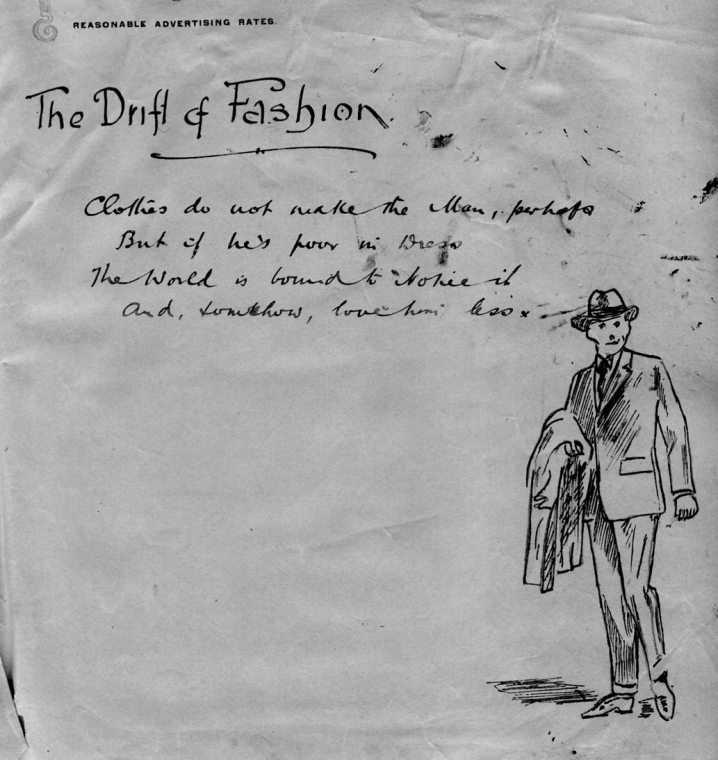 REASONABLE ADVERTISING RATES.
The Drift of Fashion.
Clothes do not make the Man, perhaps
But if he's poor in Dress
The World is bound to Notice it
And, somehow, love him less.